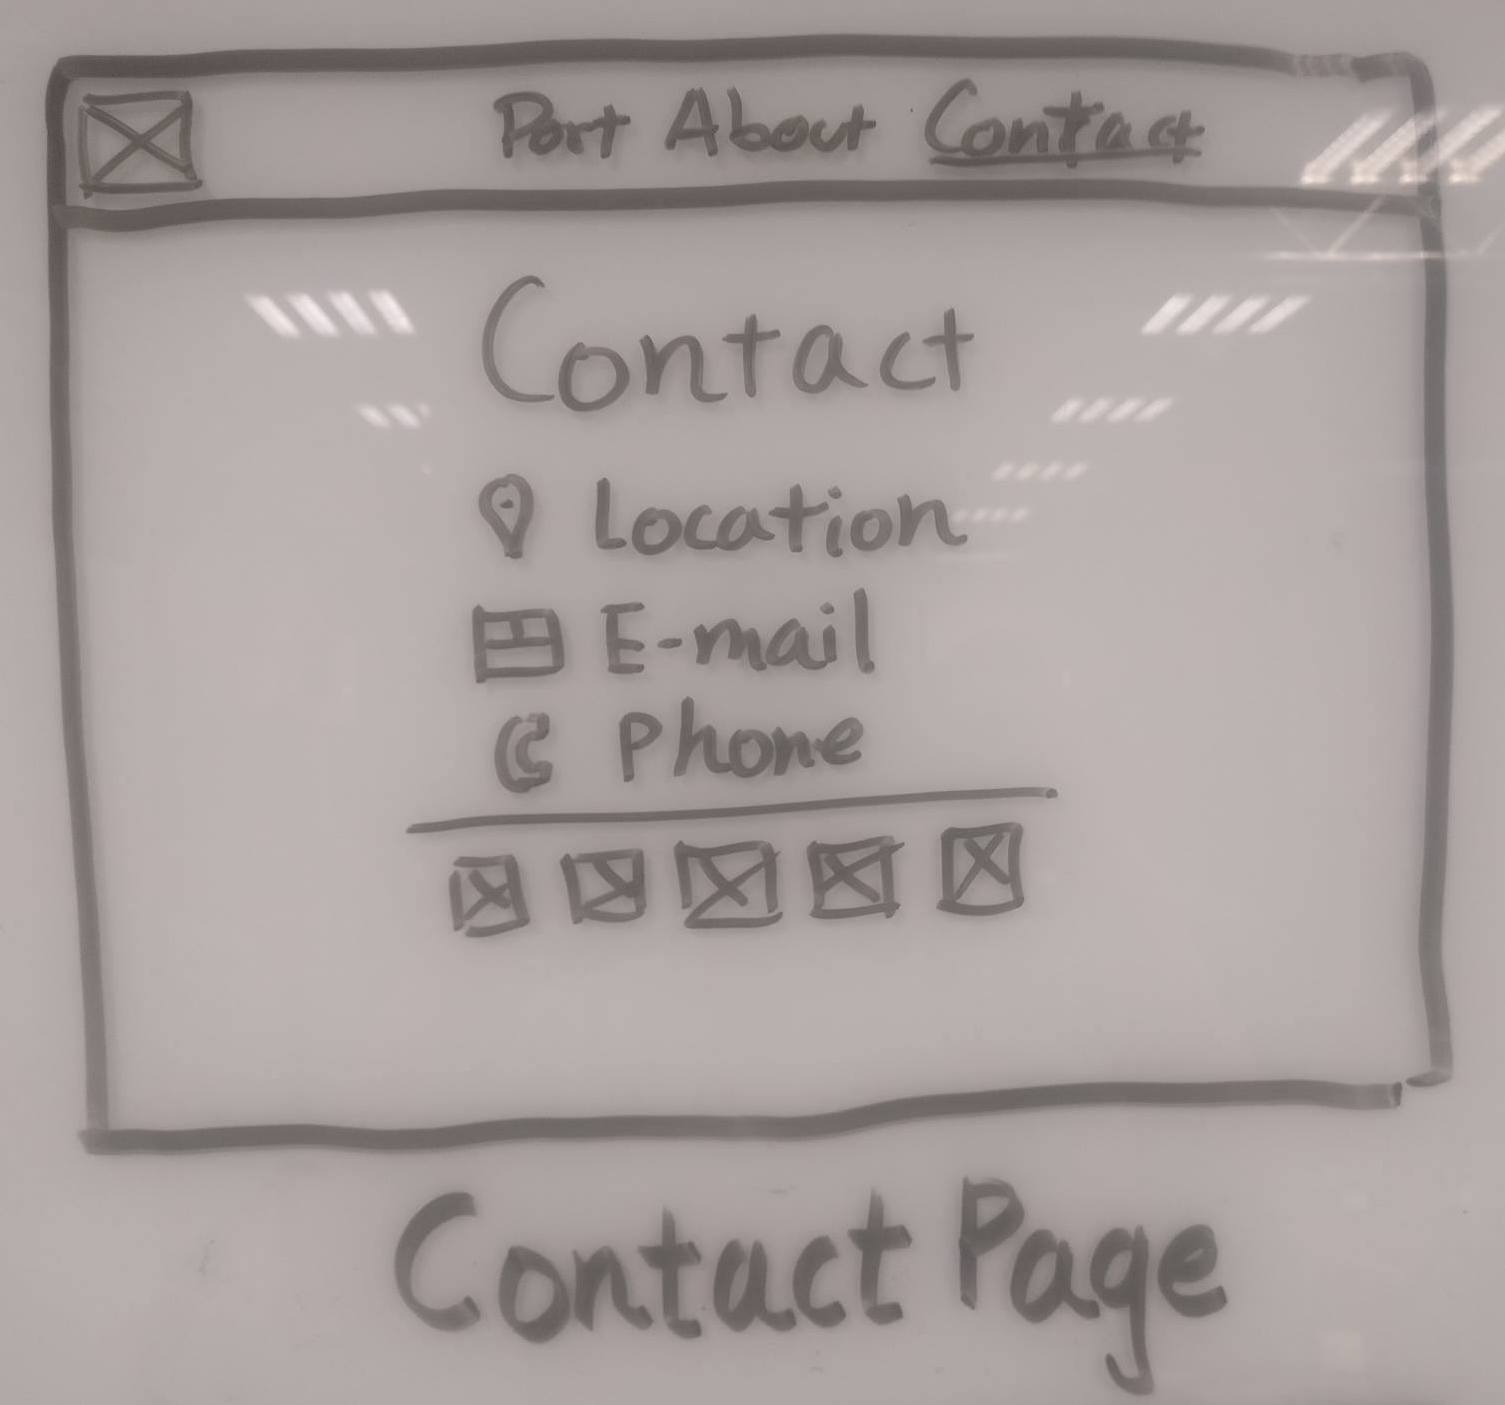 Port About Contact
Contact
Location
E-mail
Phone
Contact Page